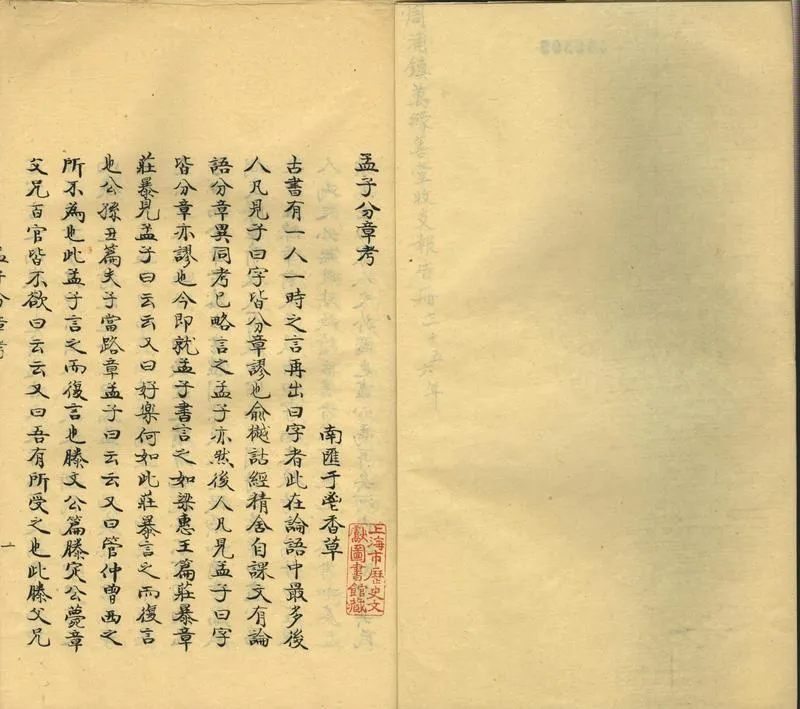 周浦鎮萬緣善堂收支報告冊二十五六年
孟子分章考
南匯于鬯香草
上海市歷史文
獻圖書館藏
古書有一人一時之言再出曰字者此在論語中最多後
人凡見子曰字皆分章謬也俞樾詁經精舍自課文有論
語分章異同考已略言之孟子亦然後人凡見孟子曰字
皆分章亦謬也今即就孟子書言之如梁惠王篇莊暴章
莊暴見孟子曰云云又曰好樂何如此莊暴言之而復言
也公孫丑篇夫子當路章孟子曰云云又曰管仲曾西之
所不為也此孟子言之而復言也滕文公篇滕定公薨章
父兄百官皆不欲曰云云又曰吾有所受之也此滕父兄
孟子分章考
一